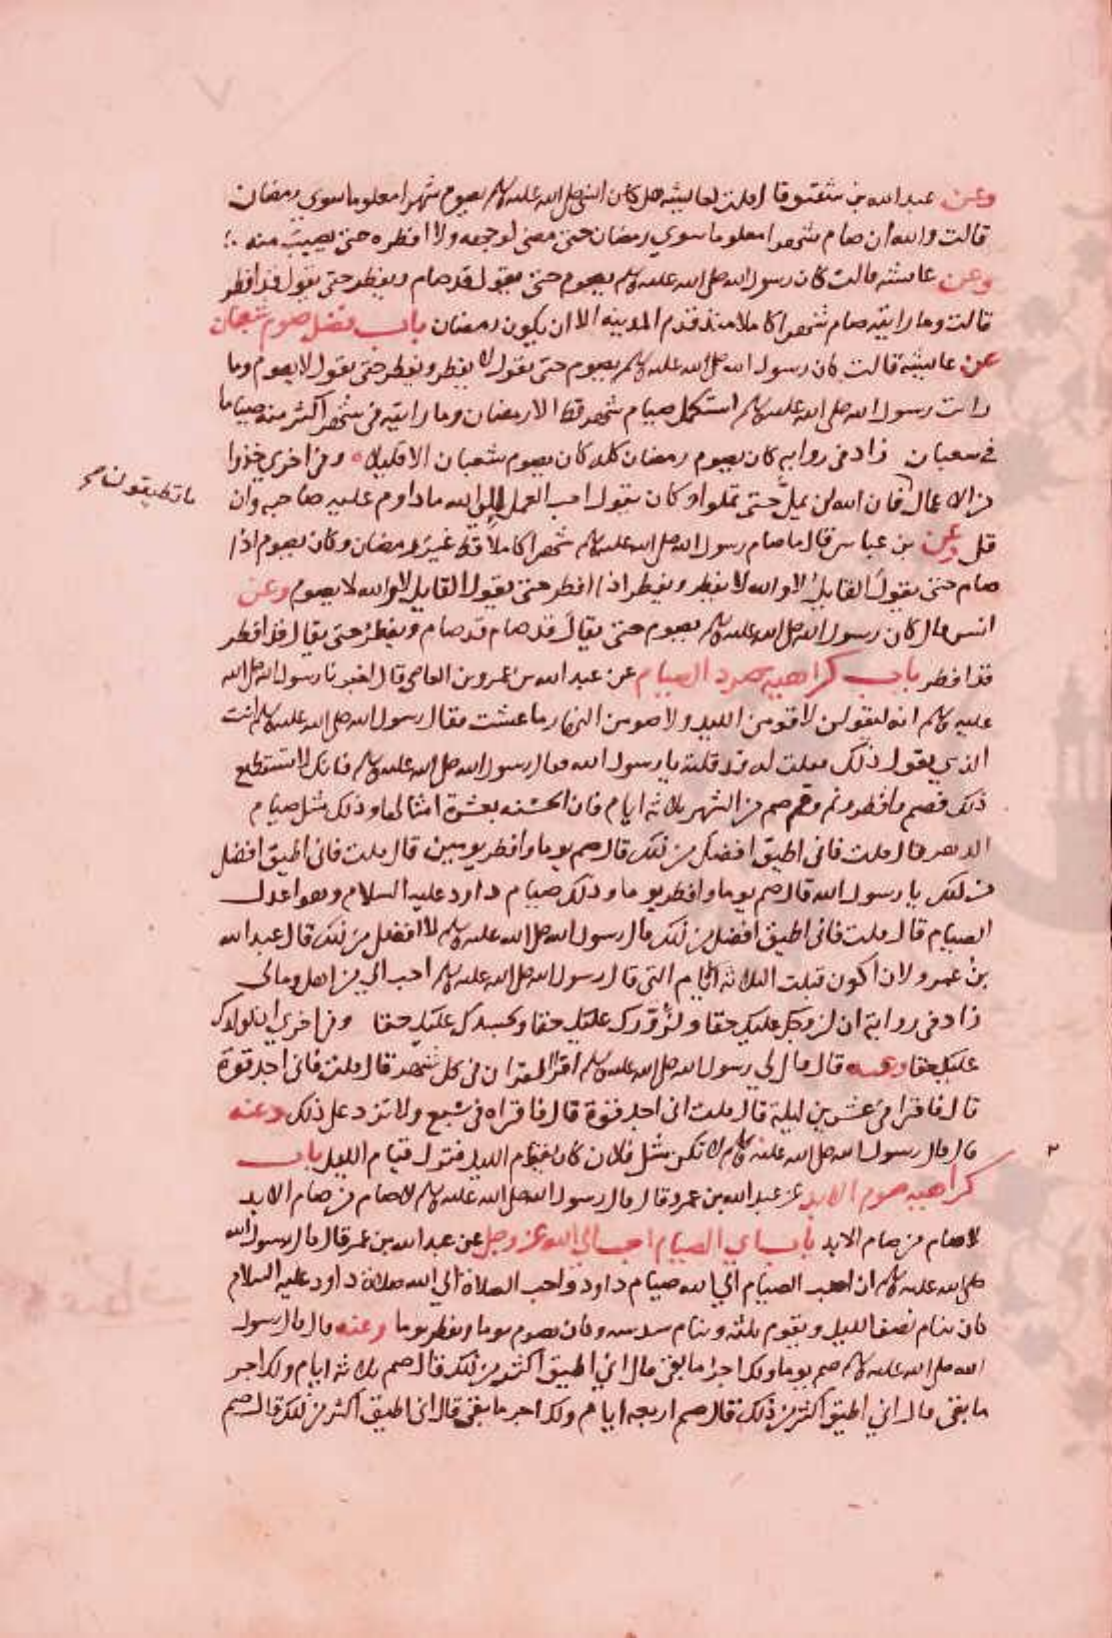 وعن عبد الله بن شقيق قال قلت لعايشه هل كان النبي صلى الله عليه وسلم يصوم شهرا معلوما سوى رمضان
قالت والله ان صام شهرا معلوما سوي رمضان حتى مضى لوجهه ولا افطره حتى يصيب منه
وعن عايشه قالت كان رسول الله صلى الله عليه وسلم يصوم حتى يقول قد صام ويفطر حتى يقول قد افطر
قالت وما رايته صام شهرا كاملا منذ قدم المدينه الا ان يكون رمضان باب فضل صوم شعبان
عن عايشه قالت كان رسول الله صلى الله عليه وسلم يصوم حتى يقول لا يفطر ويفطر حتى يقول لا يصوم وما
رايت رسول الله صلى الله عليه وسلم استكمل صيام شهر قط الا رمضان وما رايته في شهر اكثر منه صياما
في شعبان زاد في روايه كان يصوم رمضان كله كان يصوم شعبان الا قليلا وفي اخري خذوا
من الاعمال فان الله لن يمل حتى تملوا وكان يقول احب العمل الى الله ما داوم عليه صاحبه وان
ما تطيقون صح
قل وعن بن عباس قال ما صام رسول الله صلى الله عليه وسلم شهرا كاملا قط غير رمضان وكان يصوم اذا
صام حتى يقول القايل لا والله لا يفطر ويفطر اذا افطر حتى يقول القايل لا والله لا يصوم وعن
انس قال كان رسول الله صلى الله عليه وسلم يصوم حتى يقال قد صام قد صام ويفطر حتى يقال قد افطر
قد افطر باب كراهيه سرد الصيام عن عبد الله بن عمرو بن العاصي قال اخبر رسول الله صلى الله
عليه وسلم انه ليقولن لاقومن الليل ولاصومن النهار ما عشت فقال رسول الله صلى الله عليه وسلم انت
الذي يقول ذلك فقلت له قد قلته يا رسول الله فقال رسول الله صلى الله عليه وسلم فانك لا تستطيع
ذلك فصم وافطر ونم وقم صم من الشهر ثلاثه ايام فان الحسنه بعشرة امثالها وذلك مثل صيام
الدهر قال قلت فاني اطيق افضل من ذلك قال صم يوما وافطر يومين قال قلت فاني اطيق افضل
من ذلك يا رسول الله قال صم يوما وافطر يوما وذلك صيام داود عليه السلام وهو اعدل
الصيام قال قلت فاني اطيق افضل من ذلك قال رسول الله صلى الله عليه وسلم لا افضل من ذلك قال عبد الله
بن عمرو لان اكون قبلت الثلاثه ايام التي قال رسول الله صلى الله عليه وسلم احب الي من اهلي ومالي
زاد في رواية ان لزوجك عليك حقا ولزورك عليك حقا ولجسدك عليك حقا وفي اخري ان لولدك
عليك حقا وعنه قال قال لي رسول الله صلى الله عليه وسلم اقرا القران في كل شهر قال قلت فاني اجد قوة
قال فاقرا في عشرين ليلة قال قلت اني اجد قوة قال فاقراه في سبع ولا تزد على ذلك وعنه
قال قال رسول الله صلى الله عليه وسلم لا تكن مثل فلان كان يقوم الليل فترك قيام الليل باب
كراهيه صوم الابد عن عبد الله بن عمرو قال قال رسول الله صلى الله عليه وسلم لا صام من صام الابد
لا صام من صام الابد باب اي الصيام احب الى الله عز وجل عن عبد الله بن عمر قال قال رسول الله
صلى الله عليه وسلم ان احب الصيام الي الله صيام داود واحب الصلاة الي الله صلاة داود عليه السلام
كان ينام نصف الليل ويقوم ثلثه وينام سدسه وكان يصوم يوما ويفطر يوما وعنه قال قال رسول
الله صلى الله عليه وسلم صم يوما ولك اجر ما بقى قال اني اطيق اكثر من ذلك قال صم ثلاثه ايام ولك اجر
ما بقى قال اني اطيق اكثر من ذلك قال صم اربعه ايام ولك اجر ما بقى قال اني اطيق اكثر من ذلك قال صم